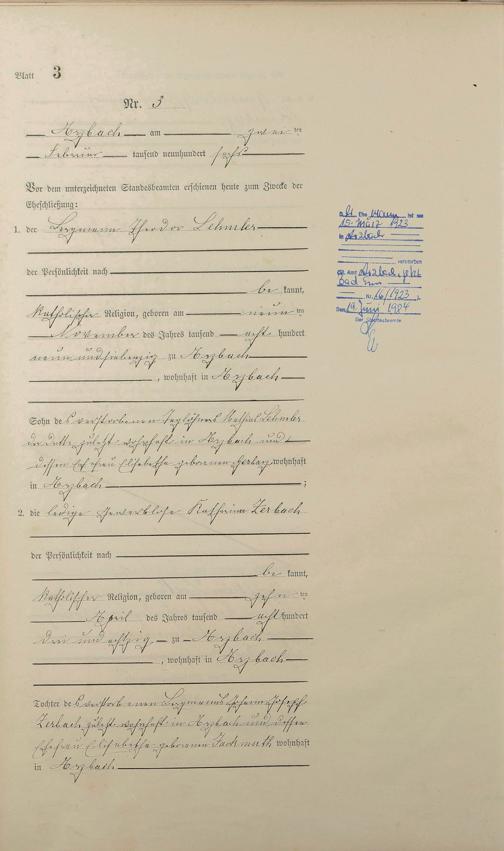 Blatt 3
Nr. 3
Arzbach am zwei ten
Februar tausend neunhundert sechs
Vor dem unterzeichneten Standesbeamten erschienen heute zum Zwecke der
Eheschließung:
1. der Bergmann Theodor Lehmler
der Persönlichkeit nach
be kannt,
katholischer Religion, geboren am neun ten
November des Jahres tausend acht hundert
neun und siebenzig zu Arzbach
, wohnhaft in Arzbach
Sohn des verstorbenen Taglöhners Lehmler
zuletzt wohnhaft in Arzbach und
dessen Ehefrau Elisabethe geborenen wohnhaft
in Arzbach ;
2. die ledige gewerblose Katharina Zerbach
der Persönlichkeit nach
be kannt,
katholischer Religion, geboren am zehn ten
April des Jahres tausend acht hundert
drei und achtzig zu Arzbach
, wohnhaft in Arzbach
Tochter des verstorbenen Bergmanns Joseph
Zerbach, zuletzt wohnhaft in Arzbach und dessen
Ehefrau Elisabethe geborenen wohnhaft
in Arzbach
Ehe mann ist am
15. März 1923
in Arzbach
verstorben
Arzbach, jetzt
Bad Ems
Nr. 16/1923
Den 19. Juni 1984
Der Standesbeamte